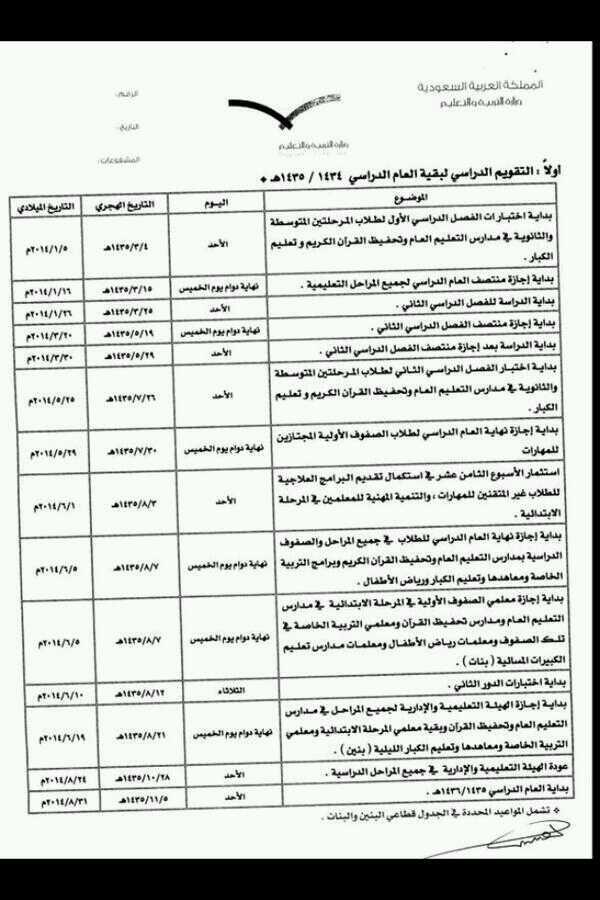 المملكة العربية السعودية
وزارة التربية والتعليم
الرقم :
التاريخ :
المشفوعات :
وزارة التربية والتعليم
أولاً : التقويم الدراسي لبقية العام الدراسي ١٤٣٤ / ١٤٣٥هـ *
الموضوع اليوم التاريخ الهجري التاريخ الميلادي
بداية اختبارات الفصل الدراسي الأول لطلاب المرحلتين المتوسطة
والثانوية في مدارس التعليم العام وتحفيظ القرآن الكريم و تعليم
الكبار .
الأحد ١٤٣٥/٣/٤هـ ٢٠١٤/١/٥م
بداية إجازة منتصف العام الدراسي لجميع المراحل التعليمية . نهاية دوام يوم الخميس ١٤٣٥/٣/١٥هـ ٢٠١٤/١/١٦م
بداية الدراسة للفصل الدراسي الثاني . الأحد ١٤٣٥/٣/٢٥هـ ٢٠١٤/١/٢٦م
بداية إجازة منتصف الفصل الدراسي الثاني . نهاية دوام يوم الخميس ١٤٣٥/٥/١٩هـ ٢٠١٤/٣/٢٠م
بداية الدراسة بعد إجازة منتصف الفصل الدراسي الثاني . الأحد ١٤٣٥/٥/٢٩هـ ٢٠١٤/٣/٣٠م
بداية اختبار الفصل الدراسي الثاني لطلاب المرحلتين المتوسطة
والثانوية في مدارس التعليم العام وتحفيظ القرآن الكريم و تعليم
الكبار .
الأحد ١٤٣٥/٧/٢٦هـ ٢٠١٤/٥/٢٥م
بداية إجازة نهاية العام الدراسي لطلاب الصفوف الأولية المجتازين
للمهارات
نهاية دوام يوم الخميس ١٤٣٥/٧/٣٠هـ ٢٠١٤/٥/٢٩م
استثمار الأسبوع الثامن عشر في استكمال تقديم البرامج العلاجية
للطلاب غير المتقنين للمهارات ، والتنمية المهنية للمعلمين في المرحلة
الابتدائية .
الأحد ١٤٣٥/٨/٣هـ ٢٠١٤/٦/١م
بداية إجازة نهاية العام الدراسي للطلاب في جميع المراحل والصفوف
الدراسية بمدارس التعليم العام وتحفيظ القرآن الكريم وبرامج التربية
الخاصة ومعاهدها وتعليم الكبار ورياض الأطفال .
نهاية دوام يوم الخميس ١٤٣٥/٨/٧هـ ٢٠١٤/٦/٥م
بداية إجازة معلمي الصفوف الأولية في المرحلة الابتدائية في مدارس
التعليم العام ومدارس تحفيظ القرآن ومعلمي التربية الخاصة في
تلك الصفوف ومعلمات رياض الأطفال ومعلمات مدارس تعليم
الكبيرات المسائية ( بنات ) .
نهاية دوام يوم الخميس ١٤٣٥/٨/٧هـ ٢٠١٤/٦/٥م
بداية اختبارات الدور الثاني . الثلاثاء ١٤٣٥/٨/١٢هـ ٢٠١٤/٦/١٠م
بداية إجازة الهيئة التعليمية والإدارية لجميع المراحل في مدارس
التعليم العام وتحفيظ القرآن وبقية معلمي المرحلة الابتدائية ومعلمي
التربية الخاصة ومعاهدها وتعليم الكبار الليلية ( بنين ) .
نهاية دوام يوم الخميس ١٤٣٥/٨/٢١هـ ٢٠١٤/٦/١٩م
عودة الهيئة التعليمية والإدارية في جميع المراحل الدراسية . الأحد ١٤٣٥/١٠/٢٨هـ ٢٠١٤/٨/٢٤م
بداية العام الدراسي ١٤٣٦/١٤٣٥هـ . الأحد ١٤٣٥/١١/٥هـ ٢٠١٤/٨/٣١م
* تشمل المواعيد المحددة في الجدول قطاعي البنين والبنات .